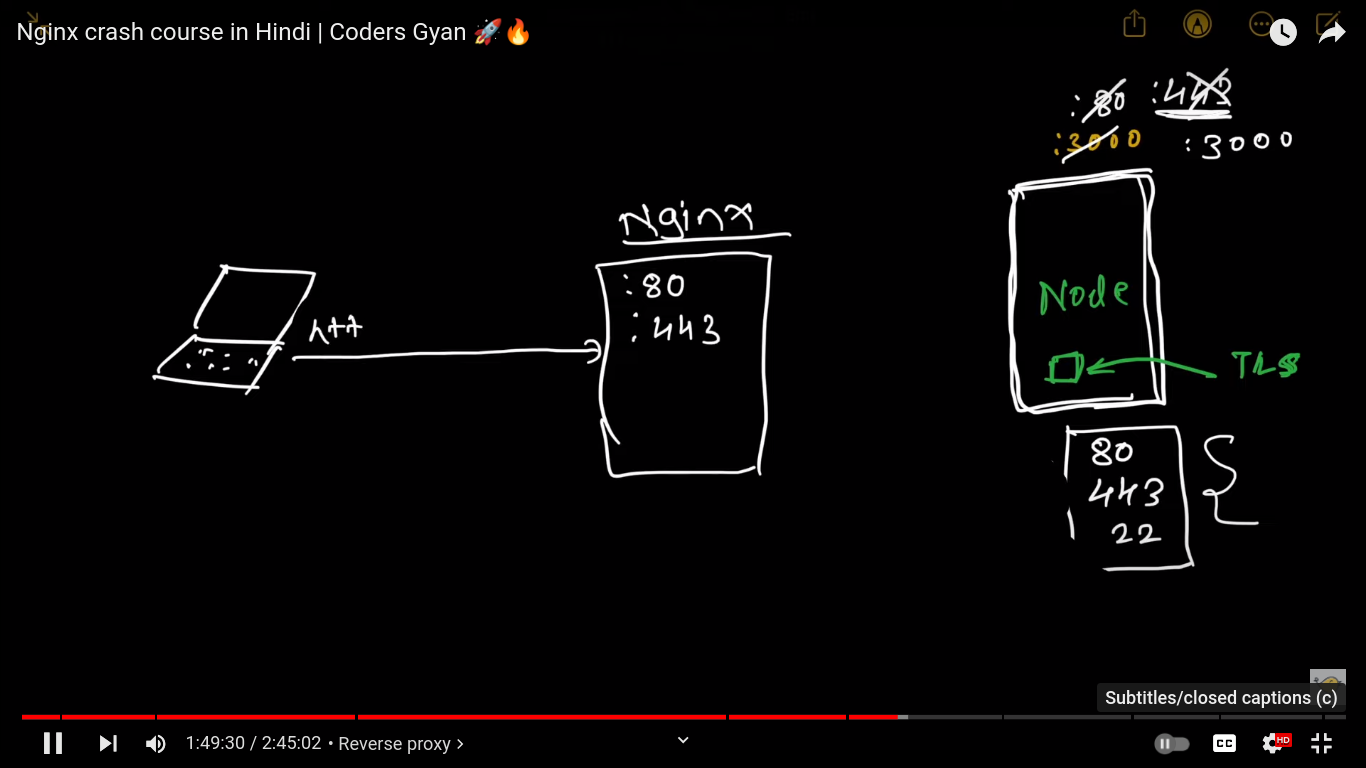 Nginx crash course in Hindi | Coders Gyan 🚀🔥
:80 :443
:3000 :3000
Nginx
:80
:443
htt
Node
TLS
80
443
22
Subtitles/closed captions (c)
1:49:30 / 2:45:02 • Reverse proxy >
CC
HD